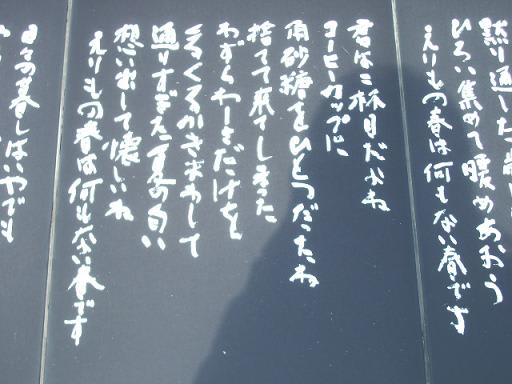 黙り通した歳
ひろい集めて暖めあおう
えりもの春は何もない春です
君は二杯目だよね
コーヒーカップに
角砂糖をひとつだったね
捨てて来てしまった
わずらわしさだけを
くるくるかきまわして
通りすぎた夏の匂い
想い出して懐しいね
えりもの春は何もない春です
日々の暮しはいやでも